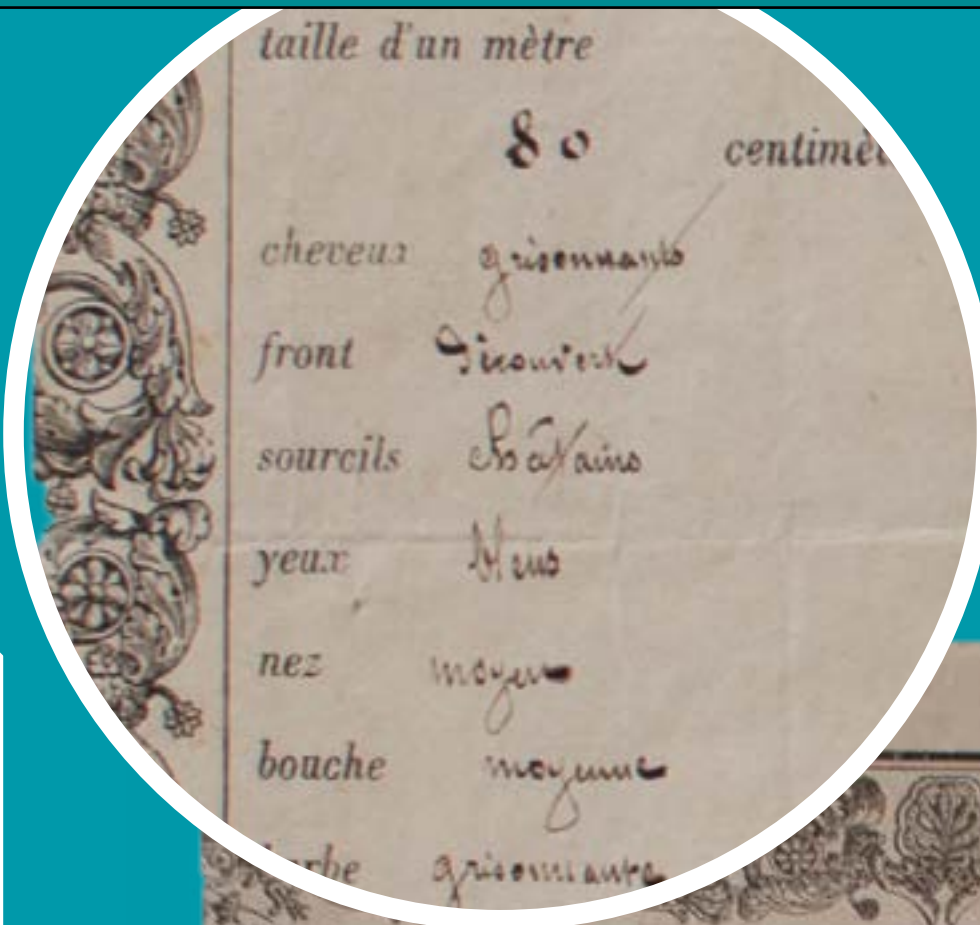 taille d'un mètre
80 centimèt
cheveux grisonnants
front Découvert
sourcils Châtains
yeux bleus
nez moyen
bouche moyenne
barbe grisonnante